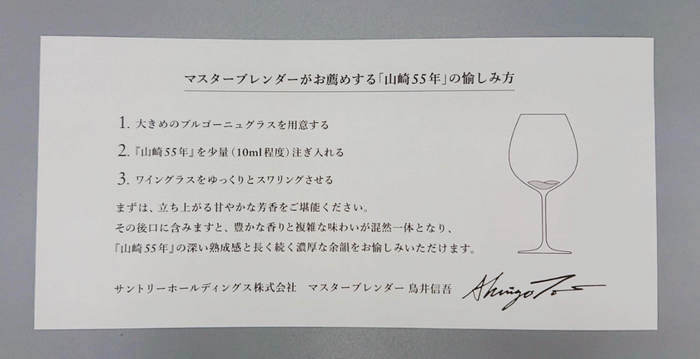 マスターブレンダーがお薦めする「山崎55年」の愉しみ方
1. 大きめのブルゴーニュグラスを用意する
2. 『山崎55年』を少量（10ml程度）注ぎ入れる
3. ワイングラスをゆっくりとスワリングさせる
まずは、立ち上がる甘やかな芳香をご堪能ください。
その後口に含みますと、豊かな香りと複雑な味わいが混然一体となり、
『山崎55年』の深い熟成感と長く続く濃厚な余韻をお愉しみいただけます。
サントリーホールディングス株式会社　マスターブレンダー 鳥井信吾